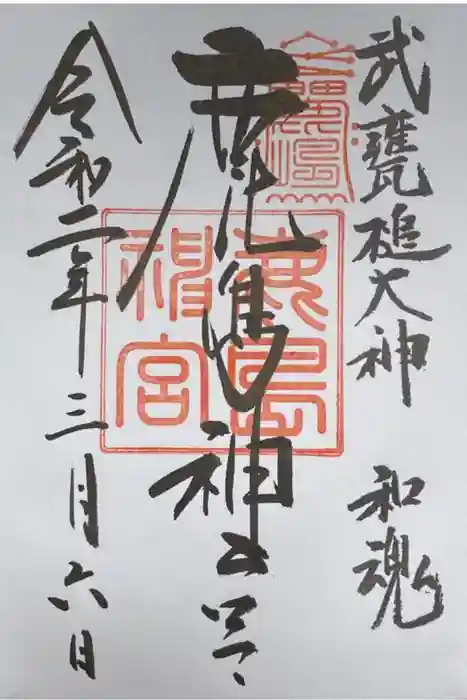 武甕槌大神 和魂
鹿島神宮
令和二年三月六日
鹿島
神宮